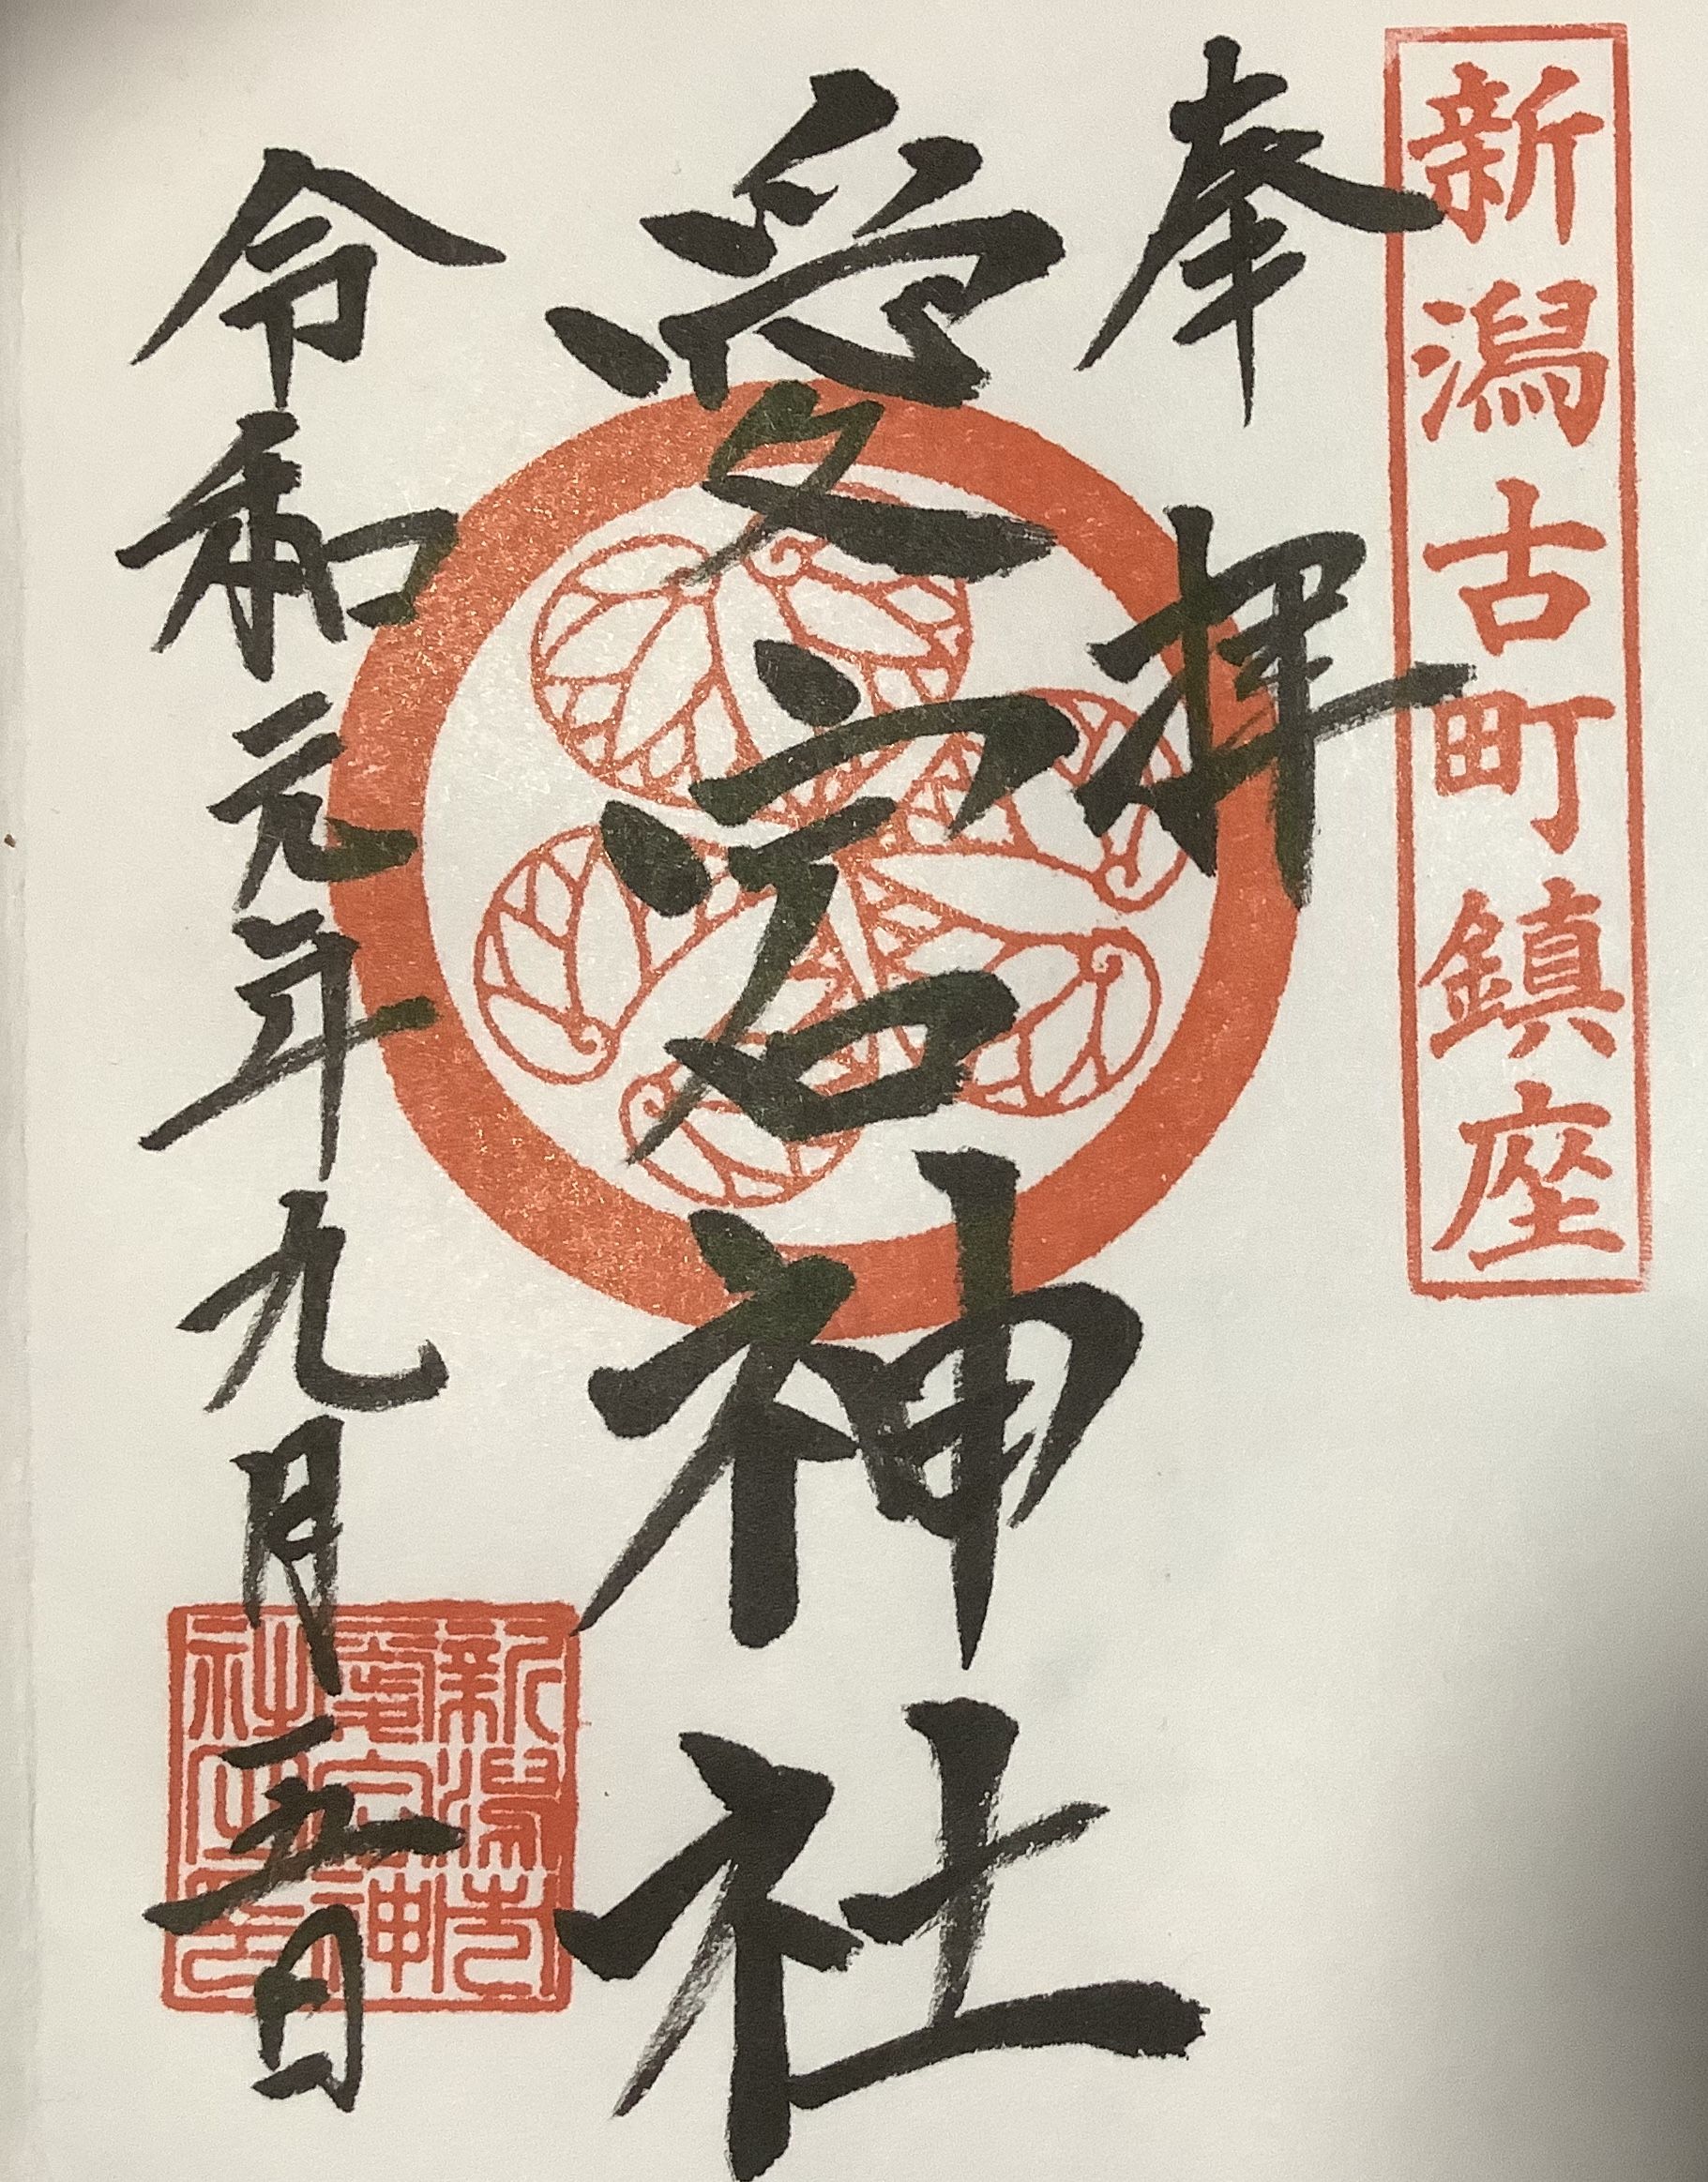 新潟古町鎮座
奉拝
愛宕神社
令和元年九月五日
新潟市
愛宕神
社